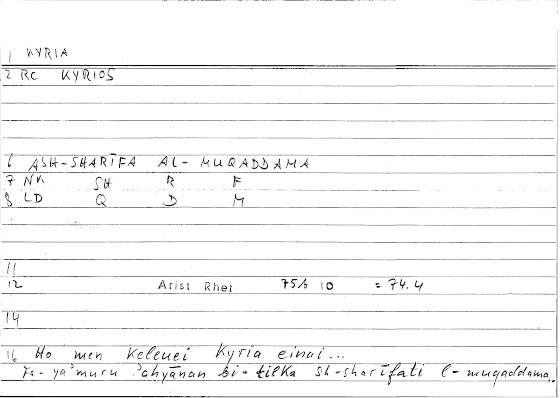 1 KYRIA
2 RC KYRIOS
6 ASH-SHARĪFA AL-MUQADDAMA
7 NK SH R F
8 LD Q D M
11
12 Arist Rhet 75b 10 = 74.4
14
16 Ho men keleuei kyria einai...
Fa-ya'muru 'ahyānan bi-tilka sh-sharīfati l-muqaddama..